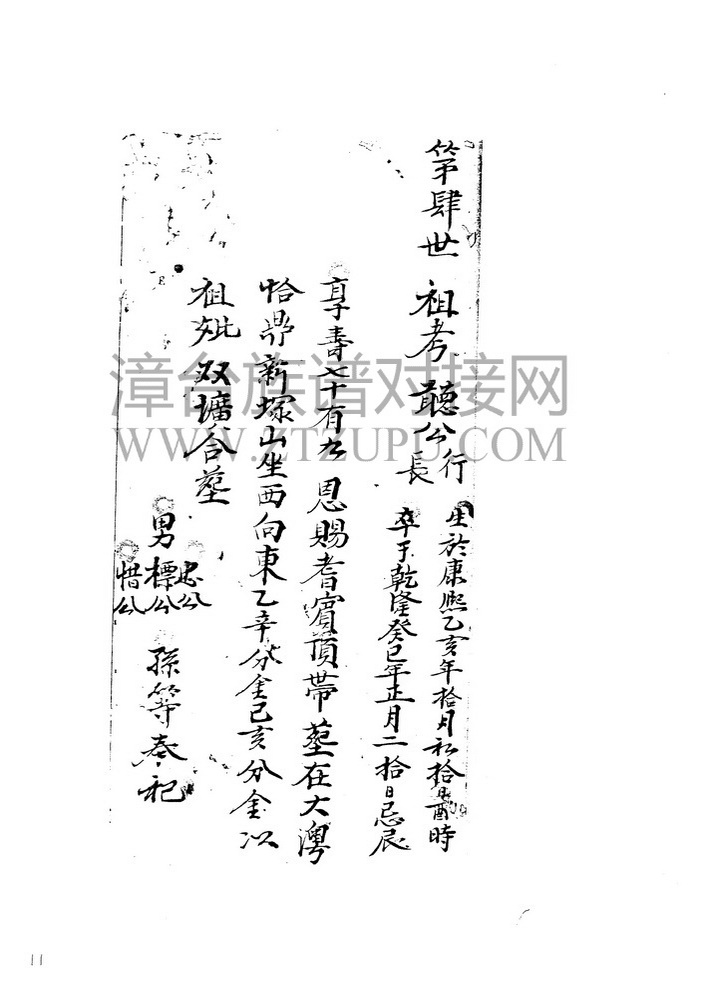 第肆世 祖考 聽公 行長
生於康熙乙亥年拾月初拾日酉時
卒于乾隆癸巳年正月二拾日忌辰
享壽七十有九 恩賜耆賓頂帶 墓在大灣
恰鼎新塚山坐西向東乙辛分金己亥分金以
祖妣 双壙合墓
男 忠公 標公 惜公 孫等奉祀
漳台族谱对接网
WWW.ZTZUPU.COM
11